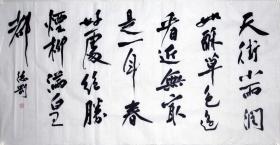 天街小雨潤
如酥草色遥
看近無最
是一年春
好處絕勝
煙柳滿皇
都